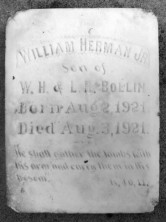 WILLIAM HERMAN JR
Son of
W. H. & L. BOLLIN
Born in Aug 2, 1921
Died Aug. 3, 1921.
He shall gather the lambs with
his arm and carry them in his
bosom.